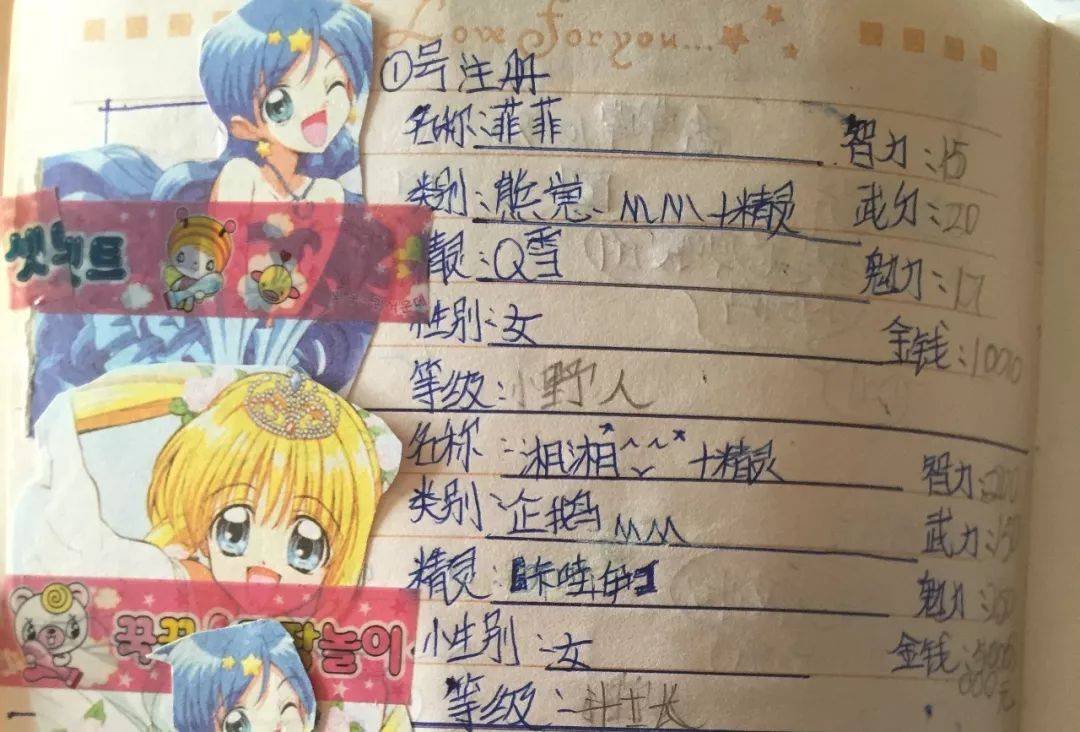 Love for you...
①号注册
名称:菲菲
智力:15
类别:熊觉、MM+精灵
武力:20
精灵:Q雪
魅力:17
性别:女
金钱:1000
等级:小野人
名称:湘湘 +精灵
智力:200
类别:企鹅MM
武力:150
精灵:
魅力
性别:女
金钱
等级:斗士长
놀이